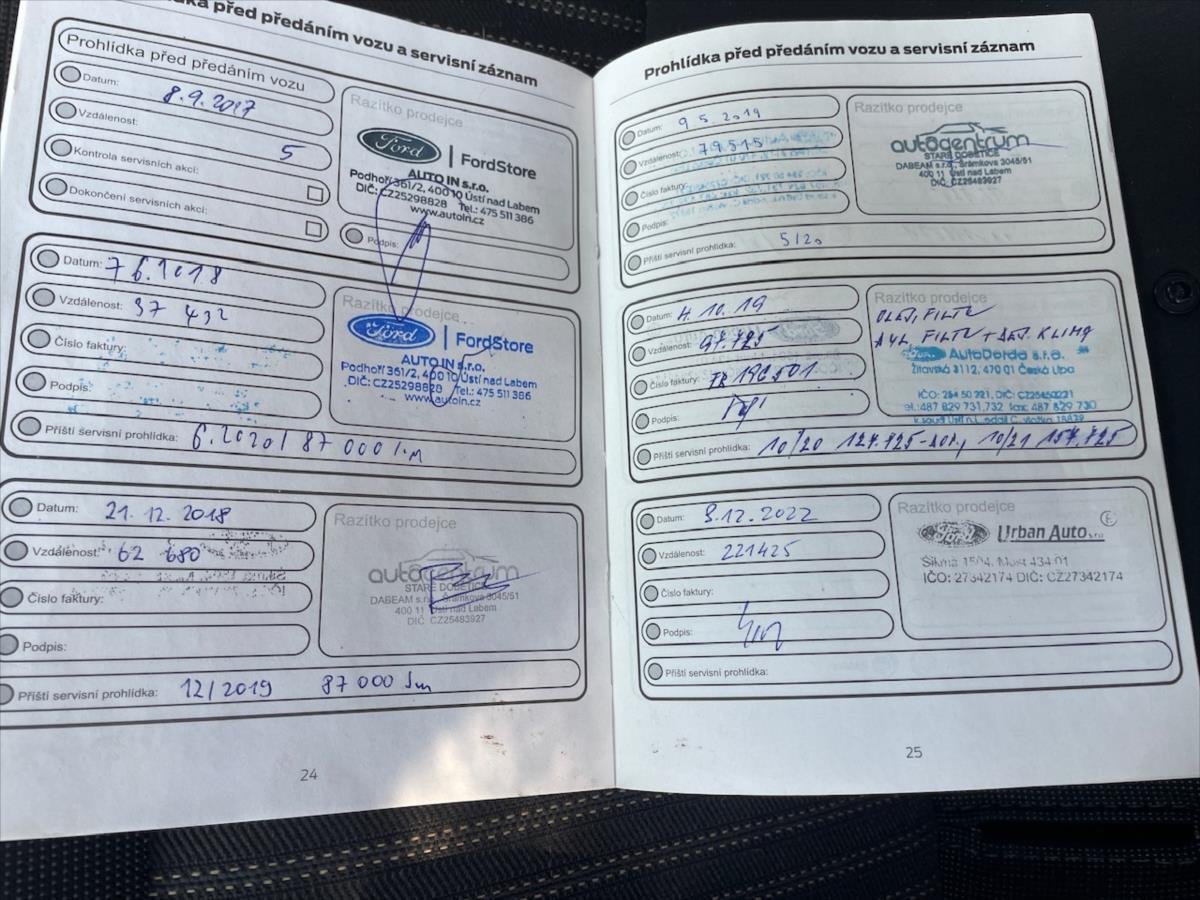 ka před předáním vozu a servisní záznam
Prohlídka před předáním vozu
Datum: 8.9.2017
Vzdálenost: 5
Kontrola servisních akcí:
Dokončení servisních akcí:
Razítko prodejce
Ford | FordStore
AUTO IN s.r.o.
Podhoří 361/2, 400 10 Ústí nad Labem
DIČ: CZ25298828 Tel.: 475 511 386
www.autoin.cz
Podpis:
Datum: 7 6.2018
Vzdálenost: 37 432
Číslo faktury:
Podpis:
Příští servisní prohlídka: 6.2020 / 87 000 km
Razítko prodejce
Ford | FordStore
AUTO IN s.r.o.
Podhoří 361/2, 400 10 Ústí nad Labem
DIČ: CZ25298828 Tel.: 475 511 386
www.autoin.cz
Datum: 21.12.2018
Vzdálenost: 62 680
Číslo faktury:
Podpis:
Příští servisní prohlídka: 12/2019 87 000 km
Razítko prodejce
autocentrum
STARÉ DOBĚTICE
DABEAM s.r.o., Šrámkova 3045/51
400 11 Ústí nad Labem
DIČ: CZ25483927
24
Prohlídka před předáním vozu a servisní záznam
Datum: 9 5. 2019
Vzdálenost: 79515
Číslo faktury:
Podpis:
Příští servisní prohlídka: 5/20
Razítko prodejce
autocentrum
STARÉ DOBĚTICE
DABEAM s.r.o., Šrámkova 3045/51
400 11 Ústí nad Labem
DIČ: CZ25483927
Datum: 4. 10. 19
Vzdálenost: 97.725
Číslo faktury:
Podpis:
Příští servisní prohlídka: 10/20 127.725 10/21 157.725
Razítko prodejce
OLEJ, FILTR
FILTR
Ford AutoDorda s.r.o.
Žitavská 3112, 470 01 Česká Lípa
IČO: 254 50 221, DIČ: CZ25450221
tel.:487 829 731,732 fax: 487 829 730
Datum: 8.12.2022
Vzdálenost: 221425
Číslo faktury:
Podpis:
Příští servisní prohlídka:
Razítko prodejce
Ford Urban Auto s.r.o.
1504, Most 434 01
IČO: 27342174 DIČ: CZ27342174
25